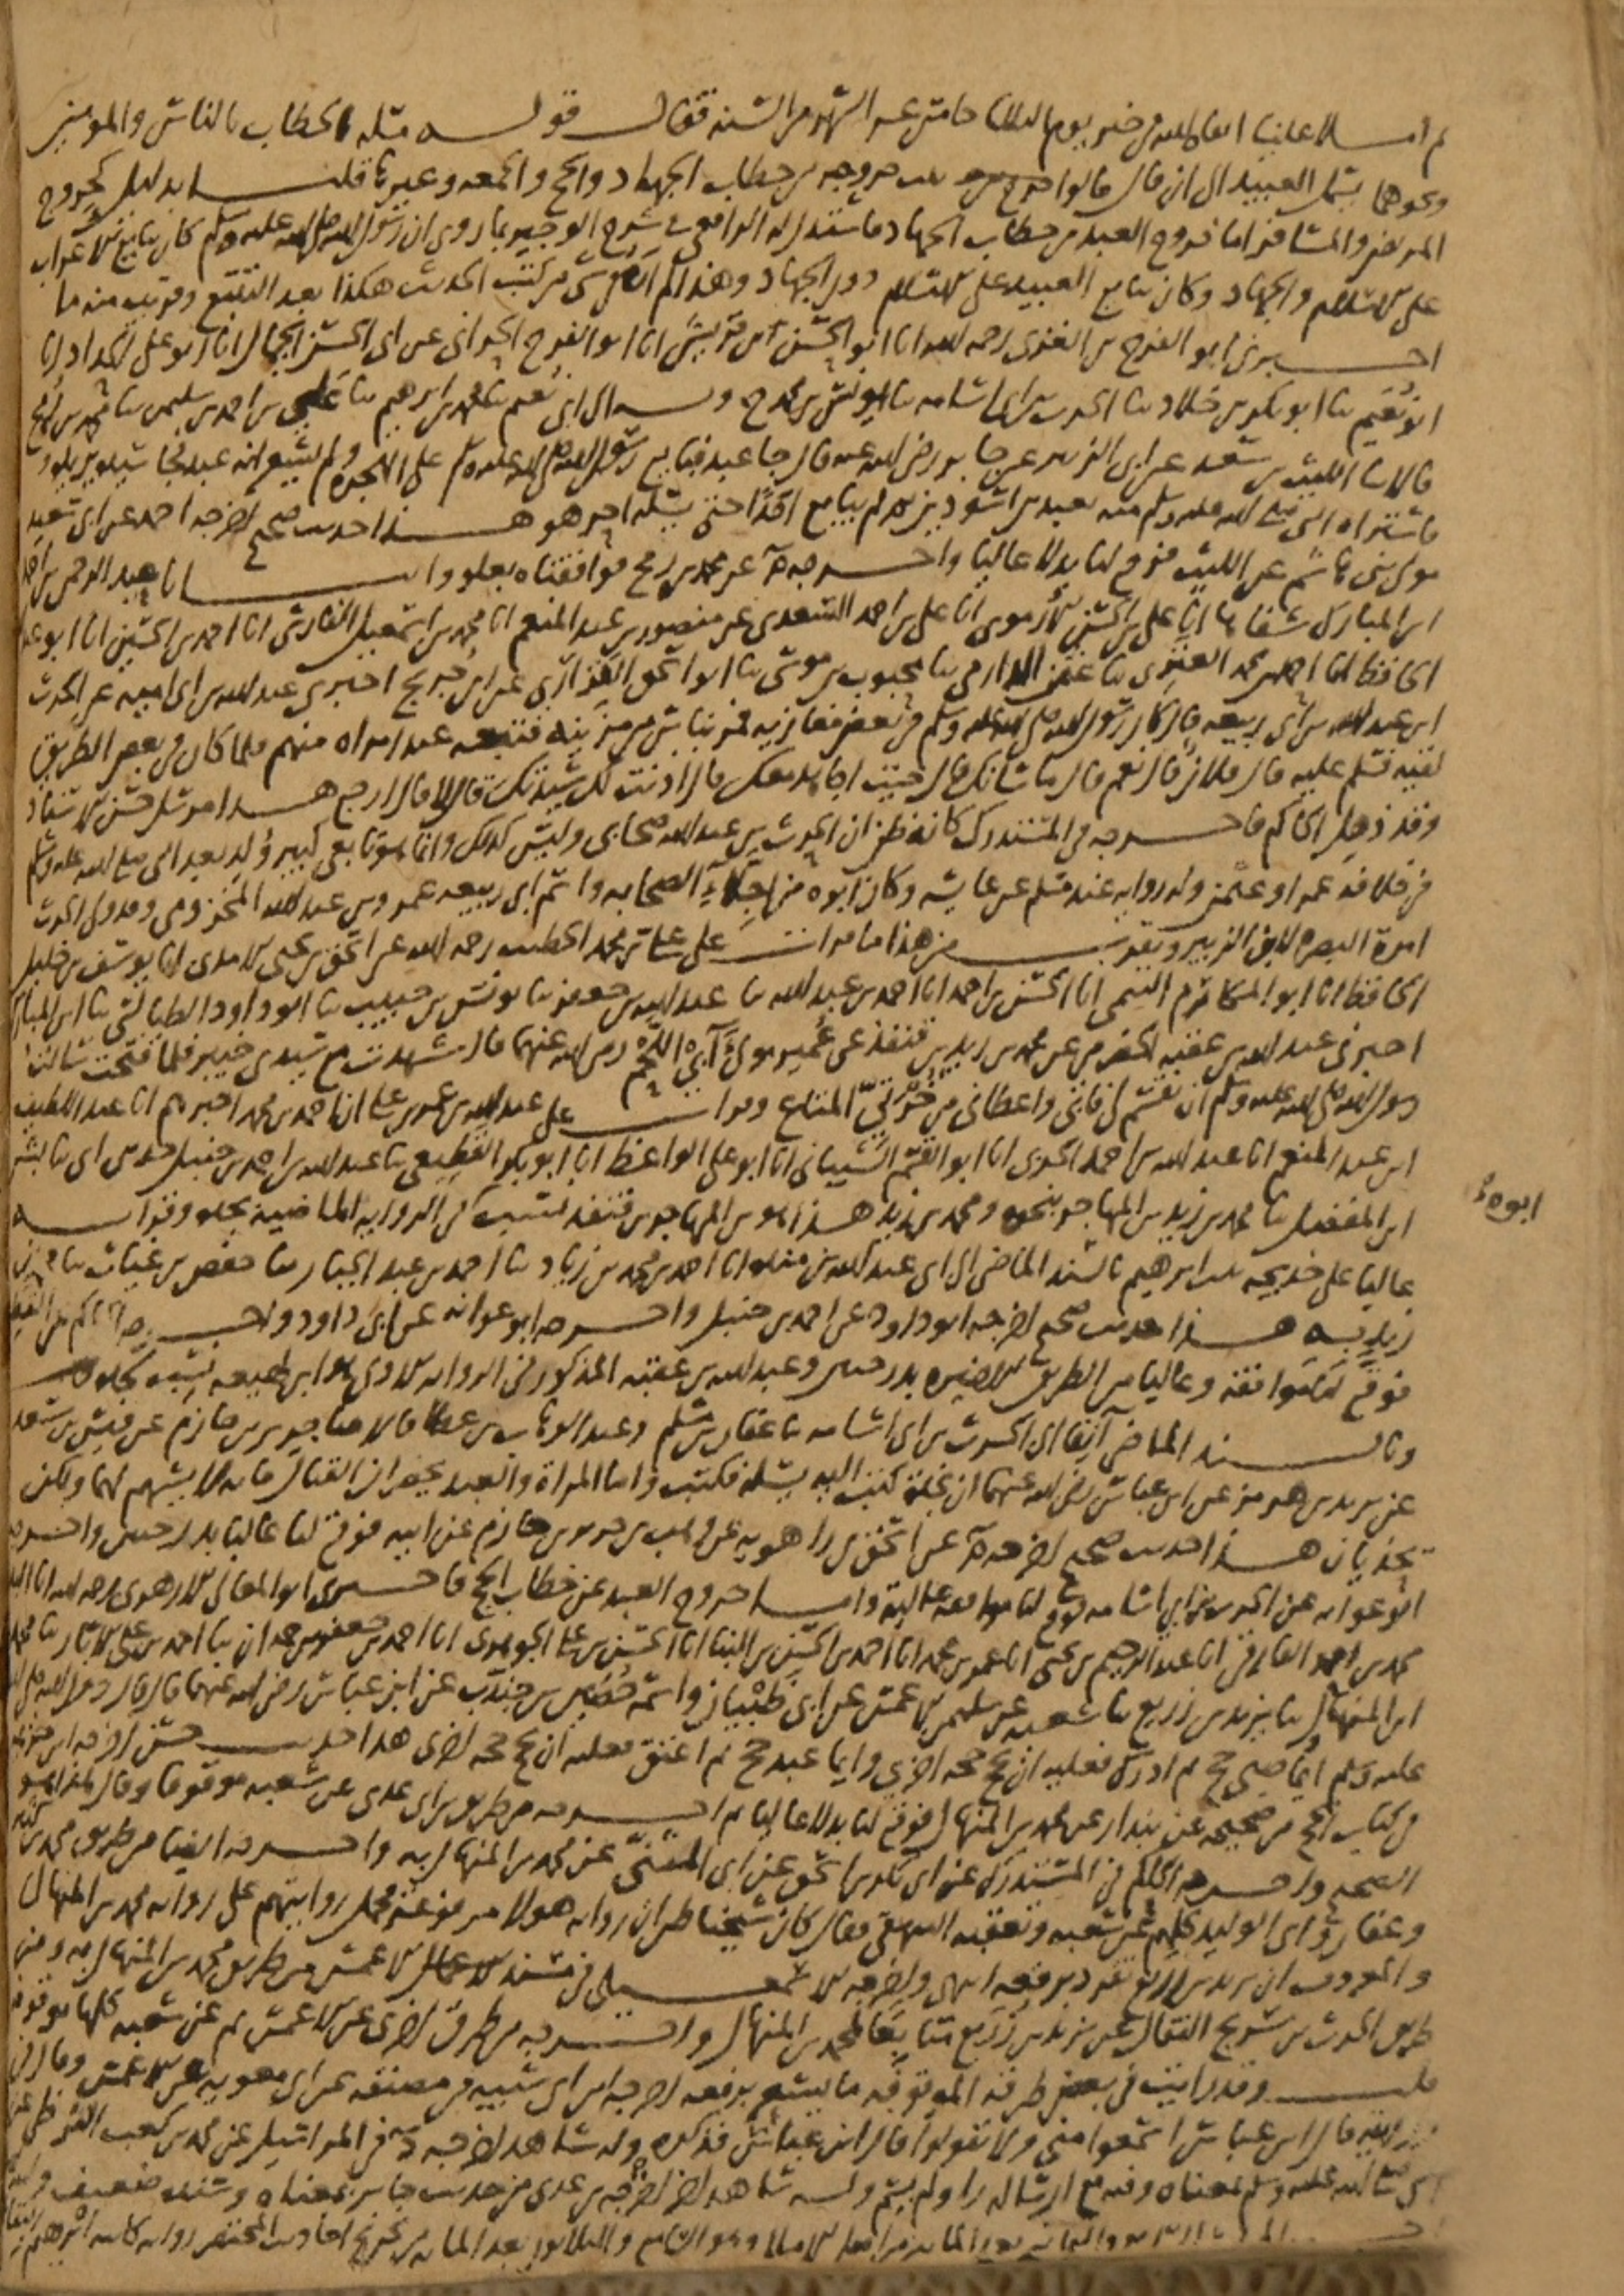 ثم املا علينا ابقاه الله في يوم الثلاثا خامس عشر الشهر من السنه فقال قوله مثله الخطاب بالناس والمومنين
ونحوهما يشمل العبيد الى ان قال قالوا خروجه من خطاب الجهاد والحج والجمعه وغيرها قلنا بدليل كخروج
المريض والمسافر اما خروج العبد من خطاب الجهاد فاستدل له الرافعي في شرح الوجيز بما روي ان رسول الله صلى الله عليه وسلم كان يبايع الاحرار
على الاسلام والجهاد وكان يبايع العبيد على الاسلام دون الجهاد وهذا لم اره في شي من كتب الحديث هكذا بعد التتبع وقريب منه ما
اخبرني ابو الفرج بن الغزي رحمه الله انا ابو الحسن بن قريش انا ابو الفرج الحراني عن ابي الحسن الجمال انا ابو علي الحداد انا
ابو نعيم ثنا ابو بكر بن خلاد ثنا الحرث بن ابي اسامه ثنا يونس بن محمد ح وبه الى ابي نعيم ثنا محمد بن ابرهيم ثنا علي بن احمد بن سليمن ثنا محمد بن رمح
قالا ثنا الليث بن سعد عن ابي الزبير عن جابر رضي الله عنه قال جا عبد فبايع رسول الله صلى الله عليه وسلم على الهجره ولم يشعر انه عبد فجا سيده يريده
فاشتراه النبي صلى الله عليه وسلم منه بعبدين اسودين ثم لم يبايع احدا حتى يسله احر هو هذا حديث صحيح اخرجه احمد عن ابي سعيد
مولى بني هاشم عن الليث فوقع لنا بدلا عاليا واخرجه م عن محمد بن رمح فوافقناه بعلو وانبانا عبد الرحمن بن احمد
ابن المبارك شفاها انا علي بن الحسن الارموي انا علي بن احمد السعدي عن منصور بن عبد المنعم انا محمد بن اسمعيل الفارسي انا احمد بن الحسين انا ابو عبد
الحافظ انا احمد بن محمد العنزي ثنا عثمن الدارمي ثنا محبوب بن موسى ثنا ابو اسحق الفزاري عن ابن جريج اخبرني عبد الله بن ابي اميه عن الحرث
ابن عبد الله بن ابي ربيعه قال كان رسول الله صلى الله عليه وسلم في بعض مغازيه فمر بناس من مزينه فتبعه عبد لامراه منهم فلما كان في بعض الطريق
لقيه فسلم عليه قال فلان قال نعم قال ما شانك قال جيت اجاهد معك قال اذنت لك سيدتك قال لا قال ارجع هذا مرسل حسن الاسناد
وقد ذهل الحاكم فاخرجه في المستدرك كانه ظن ان الحرث بن عبد الله صحابي وليس كذلك وانما هو تابعي كبير ولد بعد النبي صلى الله عليه وسلم
في خلافه عمر او عثمن وله روايه عند مسلم عن عايشه وكان ابوه من اجلاء الصحابه واسم ابي ربيعه عمرو بن عبد الله المخزومي وقد ولي الحرث
امرة البصره لابن الزبير ويقرب من هذا ما قرات على علي بن محمد الخطيب رحمه الله عن اسحق بن يحيى الامدي انا يوسف بن خليل
الحافظ انا ابو المكارم التيمي انا الحسن بن احمد انا احمد بن عبد الله ثنا عبد الله بن جعفر ثنا يونس بن حبيب ثنا ابو داود الطيالسي ثنا ابن المبارك
اخبرني عبد الله بن عقبه الحضرمي عن محمد بن زيد بن قنفذ عن عمير مولى آبي اللحم رضي الله عنهما قال شهدت مع سيدي خيبر فلما فتحت سالت
رسول الله صلى الله عليه وسلم ان يقسم لي فابى واعطاني من خرثي المتاع وقرات على عبد الله بن عمر بن علي ان احمد بن محمد اخبرهم انا عبد اللطيف
ابن عبد المنعم انا عبد الله بن احمد الحربي انا ابو القسم الشيباني انا ابو علي الواعظ انا ابو بكر القطيعي ثنا عبد الله بن احمد بن حنبل حدثني ابي ثنا بشر
ابن المفضل ثنا محمد بن زيد بن المهاجر بنحوه ومحمد بن زيد هذا هو بن المهاجر بن قنفذ نسب في الروايه الماضيه لجده وقراته
ابوه
عاليا على خديجه بنت ابرهيم بالسند الماضي الى ابي عبد الله بن منده انا احمد بن محمد بن زياد ثنا احمد بن عبد الجبار ثنا حفص بن غياث ثنا محمد بن
زيد به هذا حديث صحيح اخرجه ابو داود عن احمد بن حنبل واخرجه ابو عوانه عن ابي داود واخرجه الحاكم عن القطيعي
فوقع لنا موافقه وعاليا من الطريق الاخيره بدرجتين وعبد الله بن عقبه المذكور في الروايه الاولى هو ابن لهيعه نسب لجده
وبالسند الماضي آنفا الى الحرث بن ابي اسامه ثنا عفان بن مسلم وعبد الوهاب بن عطا قالا ثنا جرير بن حازم عن قيس بن سعد
عن يزيد بن هرمز عن ابن عباس رضي الله عنهما ان نجدة كتب اليه يسله فكتب واما المراة والعبد يحضران القتال فانه لا يسهم لهما ولكن
يحذيان هذا حديث صحيح اخرجه م عن اسحق بن راهويه عن وهب بن جرير بن حازم عن ابيه فوقع لنا عاليا بدرجتين واخرجه
ابو عوانه عن الحرث بن ابي اسامه فوقع لنا موافقه عاليه واما خروج العبد عن خطاب الحج فاخبرني ابو المعالي الازهري رحمه الله انا
محمد بن احمد الفارقي انا عبد الرحيم بن يحيى انا عمر بن محمد انا احمد بن الحسن بن البنا انا الحسن بن علي الجوهري انا احمد بن جعفر بن حمدان ثنا احمد بن علي الابار ثنا محمد
ابن المنهال ثنا يزيد بن زريع ثنا شعبه عن سليمن الاعمش عن ابي ظبيان واسمه حصين بن جندب عن ابن عباس رضي الله عنهما قال قال رسول الله صلى الله
عليه وسلم ايما صبي حج ثم ادرك فعليه ان يحج حجه اخرى وايما عبد حج ثم اعتق فعليه ان يحج حجه اخرى هذا حديث حسن اخرجه ابن خزيمه
في كتاب الحج من صحيحه عن بندار عن محمد بن المنهال فوقع لنا بدلا عاليا ثم اخرجه من طريق بن ابي عدي عن شعبه موقوفا وقال هذا هو
الصحيح واخرجه الحاكم في المستدرك عن ابي بكر بن اسحق عن ابي المثنى عن محمد بن المنهال به واخرجه ايضا من طريق محمد بن كثير
وعفان وابي الوليد كلهم عن شعبه وتعقبه البيهقي فقال كان شيخنا ظن ان روايه هولا مرفوعه فحمل روايتهم على روايه محمد بن المنهال
والمعروف ان يزيد بن زريع تفرد برفعه انتهى واخرجه الاسمعيلي في مسند الاعمش من طريق محمد بن المنهال به ومن
طريق الحرث بن سريج النقال عن يزيد بن زريع متابعا لمحمد بن المنهال واخرجه من طرق اخرى عن الاعمش ثم عن شعبه كلها موقوفه
قلت وقد رايت في بعض طرقه الموقوفه ما يشعر برفعه اخرجه ابن ابي شيبه في مصنفه عن ابي معويه عن الاعمش وقال في
روايته قال ابن عباس اسمعوا مني ولا تقولوا قال ابن عباس فذكره وله شاهد اخرجه د في المراسيل عن محمد بن كعب القرظي عن
النبي صلى الله عليه وسلم بمعناه وفيه مع ارساله راو لم يسم وله شاهد اخر اخرجه بن عدي من حديث جابر بمعناه وسنده ضعيف